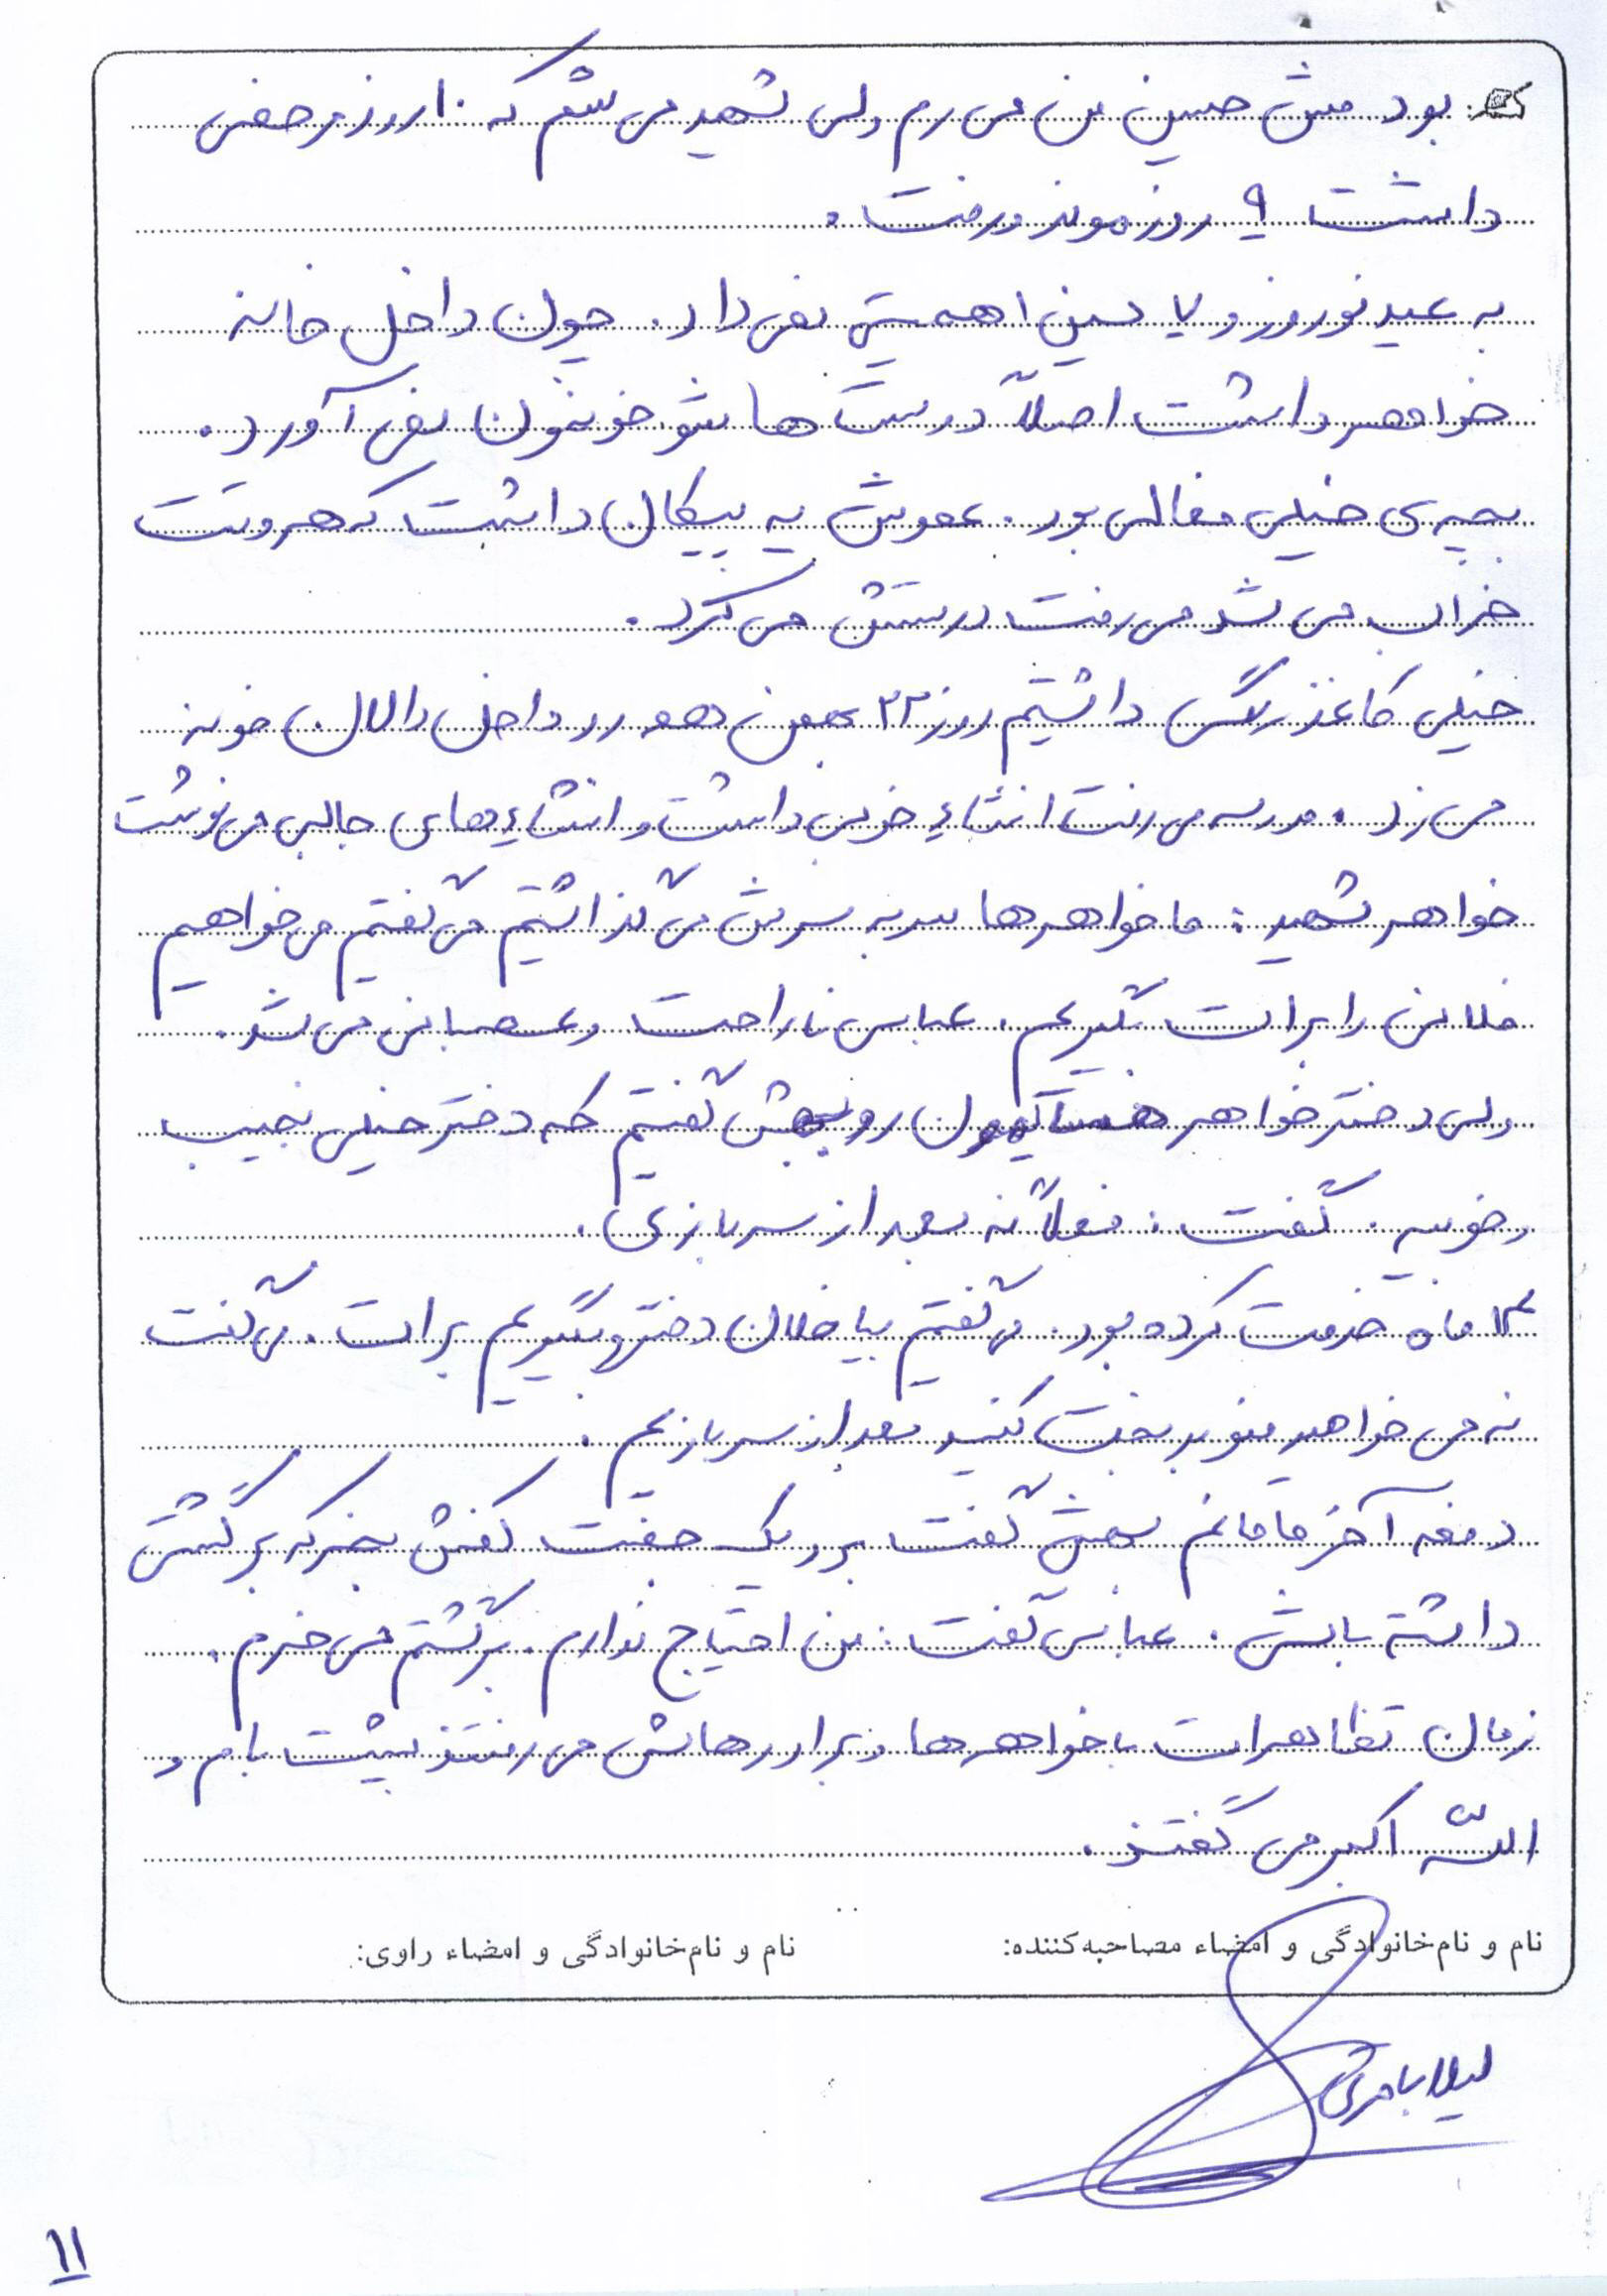 بود مش حسین من می رم ولی شهید می شم که ۱۰ روز مرخصی
داشت ۹ روز موند و رفت.
به عید نوروز و لباس اهمیتی نمی داد. چون داخل خانه
خواهر داشت اصلاً دوست هاشو خونمون نمی آورد.
بچه ی خیلی فعالی بود. عموش یه پیکان داشت که هر وقت
خراب می شد می رفت درستش می کرد.
خیلی کاغذ رنگی داشتیم روز ۲۲ بهمن همه رو داخل دالان خونه
می زد. مدرسه می رفت انشاء خوبی داشت و انشاءهای جالبی می نوشت
خواهر شهید: ما خواهرها سر به سرش می گذاشتیم می گفتیم می خواهیم
فلانی را برات بگیریم. عباس ناراحت و عصبانی می شد.
ولی دختر خواهر رو بهش گفتیم که دختر خیلی نجیب
و خوبیه. گفت: فعلاً نه بعد از سربازی.
ماه خدمت کرده بود. می گفتیم بیا فلان دخترو بگیریم برات. می گفت
نه می خواهید منو بدبخت کنید بعد از سربازیم.
دفعه آخر مامانم بهش گفت برو یک جفت کفش بخر که برگشتی
داشته باشی. عباس گفت: من احتیاج ندارم. برگشتم می خرم.
زمان تظاهرات با خواهرها و برادرهاش می رفتند پشت بام و
اللّه اکبر می گفتند.
نام و نام‌خانوادگی و امضاء مصاحبه‌کننده: نام و نام‌خانوادگی و امضاء راوی:
لیلا
۱۱